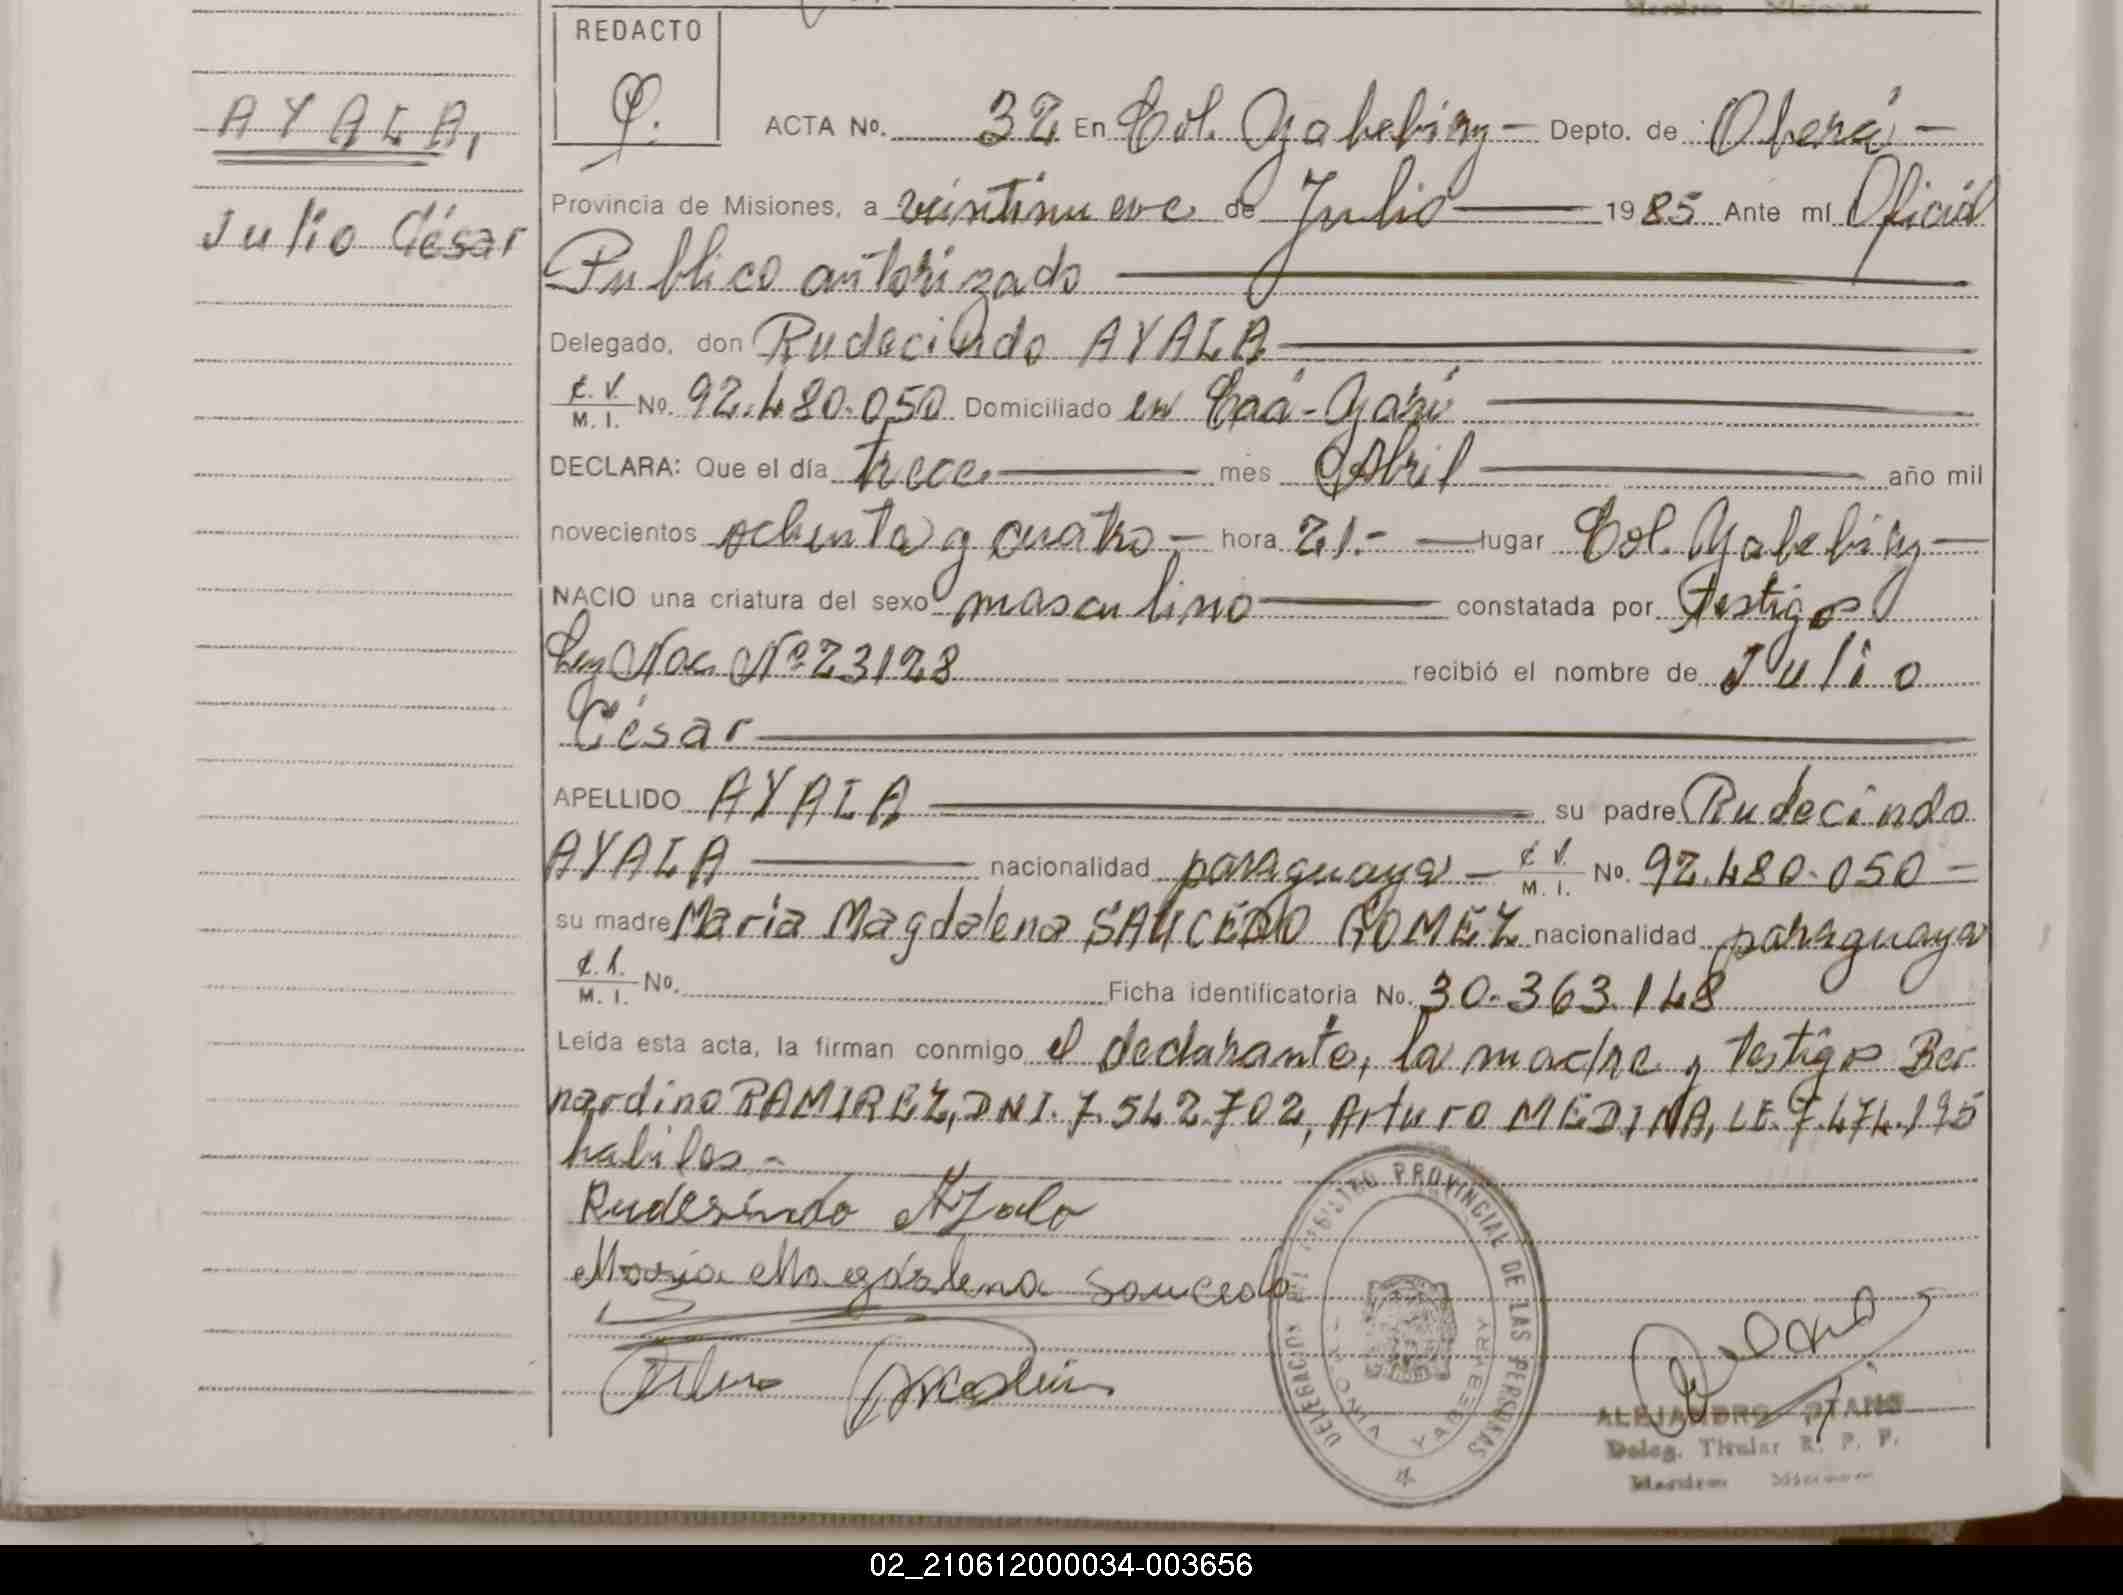 REDACTO
AYALA,
Julio César
ACTA No. 32 En Col. Yabebiry - Depto. de Oberá -
Provincia de Misiones, a veintinueve de Julio 1985 Ante mí Oficial
Publico autorizado
Delegado, don Rudecindo AYALA
C. I. / M. I. No. 92.480.050 Domiciliado en Caá-Yarí
DECLARA: Que el día trece mes Abril año mil
novecientos ochenta y cuatro - hora 21.- lugar Col. Yabebiry -
NACIO una criatura del sexo masculino constatada por testigos
Ley Nac. Nº 23128 recibió el nombre de Julio
César
APELLIDO AYALA su padre Rudecindo
AYALA nacionalidad paraguaya - C. I. / M. I. No. 92.480.050 =
su madre Maria Magdalena SAUCEDO GOMEZ nacionalidad paraguaya
C. I. / M. I. No. Ficha identificatoria No. 30.363.148
Leída esta acta, la firman conmigo el declarante, la madre y testigos Ber
nardino RAMIREZ, DNI. 7.542.702, Arturo MEDINA, LE. 7.474.195
habiles -
Rudesindo Ayala
Maria Magdalena Saucedo
Arturo Medina
DELEGACION DEL REGISTRO PROVINCIAL DE LAS PERSONAS
COLONIA YABEBIRY
ALEJANDRO
Deleg. Titular R. P. P.
Misiones
02_210612000034-003656